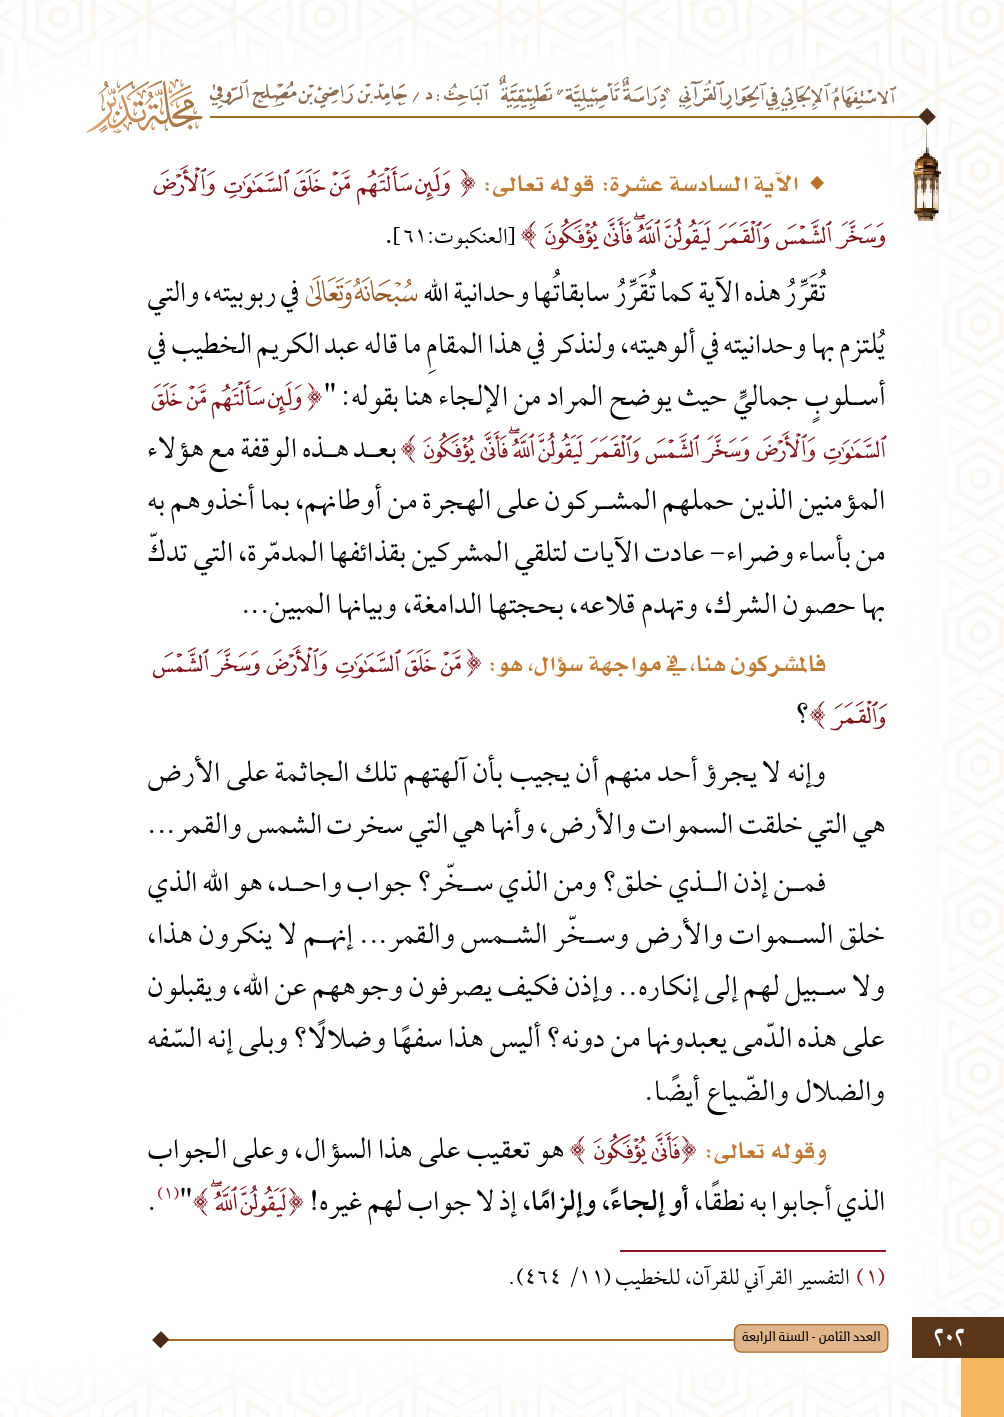 الاستفهام الإلجائي في الحوار القرآني "دِرَاسَةٌ تَأصِيلِيَّة" تَطبِيقِيَّةٌ الباحث: د / حَامِد بْن رَاضِي بْن مُصْلِح الرّوقي
مجلة تدبر
◆ الآية السادسة عشرة: قوله تعالى: ﴿ وَلَئِن سَأَلْتَهُم مَّنْ خَلَقَ ٱلسَّمَٰوَٰتِ وَٱلْأَرْضَ
وَسَخَّرَ ٱلشَّمْسَ وَٱلْقَمَرَ لَيَقُولُنَّ ٱللَّهُ ۖ فَأَنَّىٰ يُؤْفَكُونَ ﴾ [العنكبوت:٦١].
تُقَرِّرُ هذه الآية كما تُقَرِّرُ سابقاتُها وحدانية الله سُبْحَانَهُ وَتَعَالَىٰ في ربوبيته، والتي
يُلتزم بها وحدانيته في ألوهيته، ولنذكر في هذا المقامِ ما قاله عبد الكريم الخطيب في
أسلوبٍ جماليٍّ حيث يوضح المراد من الإلجاء هنا بقوله: "﴿ وَلَئِن سَأَلْتَهُم مَّنْ خَلَقَ
ٱلسَّمَٰوَٰتِ وَٱلْأَرْضَ وَسَخَّرَ ٱلشَّمْسَ وَٱلْقَمَرَ لَيَقُولُنَّ ٱللَّهُ ۖ فَأَنَّىٰ يُؤْفَكُونَ ﴾ بعد هذه الوقفة مع هؤلاء
المؤمنين الذين حملهم المشركون على الهجرة من أوطانهم، بما أخذوهم به
من بأساء وضراء– عادت الآيات لتلقي المشركين بقذائفها المدمّرة، التي تدكّ
بها حصون الشرك، وتهدم قلاعه، بحجتها الدامغة، وبيانها المبين...
فالمشركون هنا، في مواجهة سؤال، هو: ﴿ مَّنْ خَلَقَ ٱلسَّمَٰوَٰتِ وَٱلْأَرْضَ وَسَخَّرَ ٱلشَّمْسَ
وَٱلْقَمَرَ ﴾؟
وإنه لا يجرؤ أحد منهم أن يجيب بأن آلهتهم تلك الجاثمة على الأرض
هي التي خلقت السموات والأرض، وأنها هي التي سخرت الشمس والقمر...
فمن إذن الذي خلق؟ ومن الذي سخّر؟ جواب واحد، هو الله الذي
خلق السموات والأرض وسخّر الشمس والقمر... إنهم لا ينكرون هذا،
ولا سبيل لهم إلى إنكاره.. وإذن فكيف يصرفون وجوههم عن الله، ويقبلون
على هذه الدّمى يعبدونها من دونه؟ أليس هذا سفهًا وضلالًا؟ وبلى إنه السّفه
والضلال والضّياع أيضًا.
وقوله تعالى: ﴿فَأَنَّىٰ يُؤْفَكُونَ ﴾ هو تعقيب على هذا السؤال، وعلى الجواب
الذي أجابوا به نطقًا، أو إلجاءً، وإلزامًا، إذ لا جواب لهم غيره! ﴿لَيَقُولُنَّ ٱللَّهُ ۖ ﴾"(١).
(١) التفسير القرآني للقرآن، للخطيب (١١/ ٤٦٤).
العدد الثامن - السنة الرابعة
٢٠٢